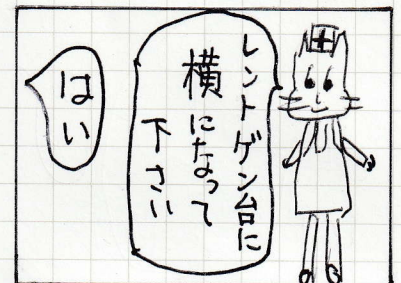 レントゲン台に
横になって
下さい
はい